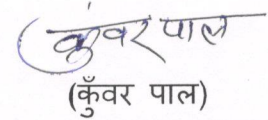 कुंवर पाल
(कुँवर पाल)